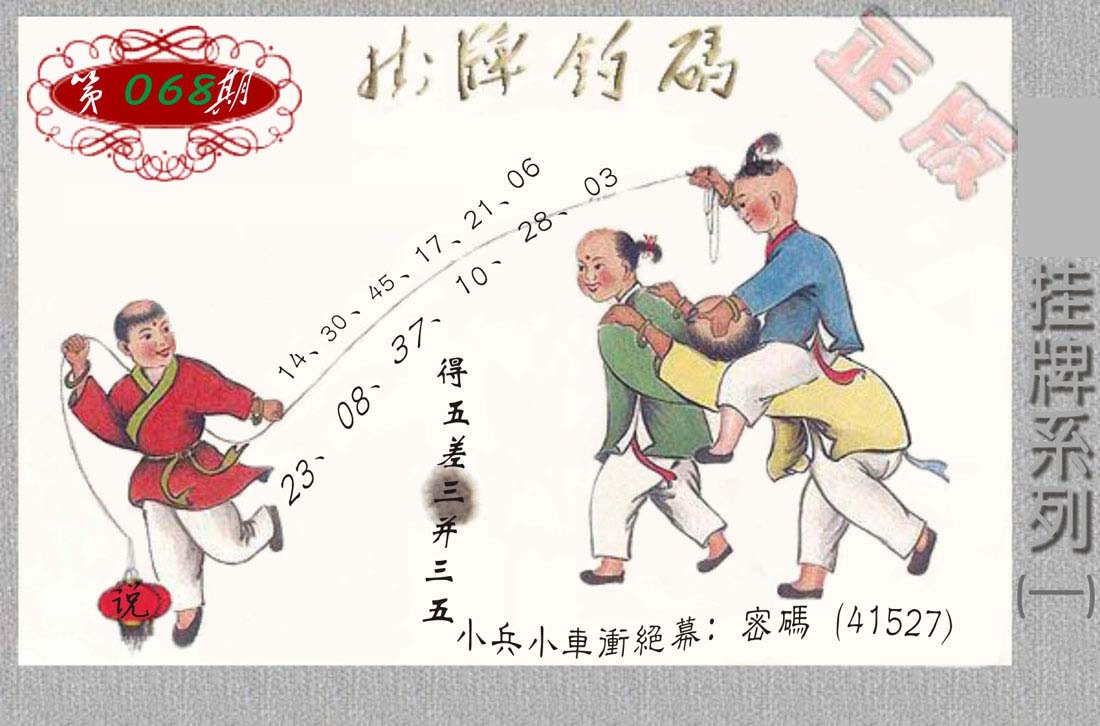 第068期
掛牌釣碼
正版
14、30、45、17、21、06
23、08、37、10、28、03
得五差三并三五
说
小兵小車衝絕幕：密碼（41527）
挂牌系列(一)